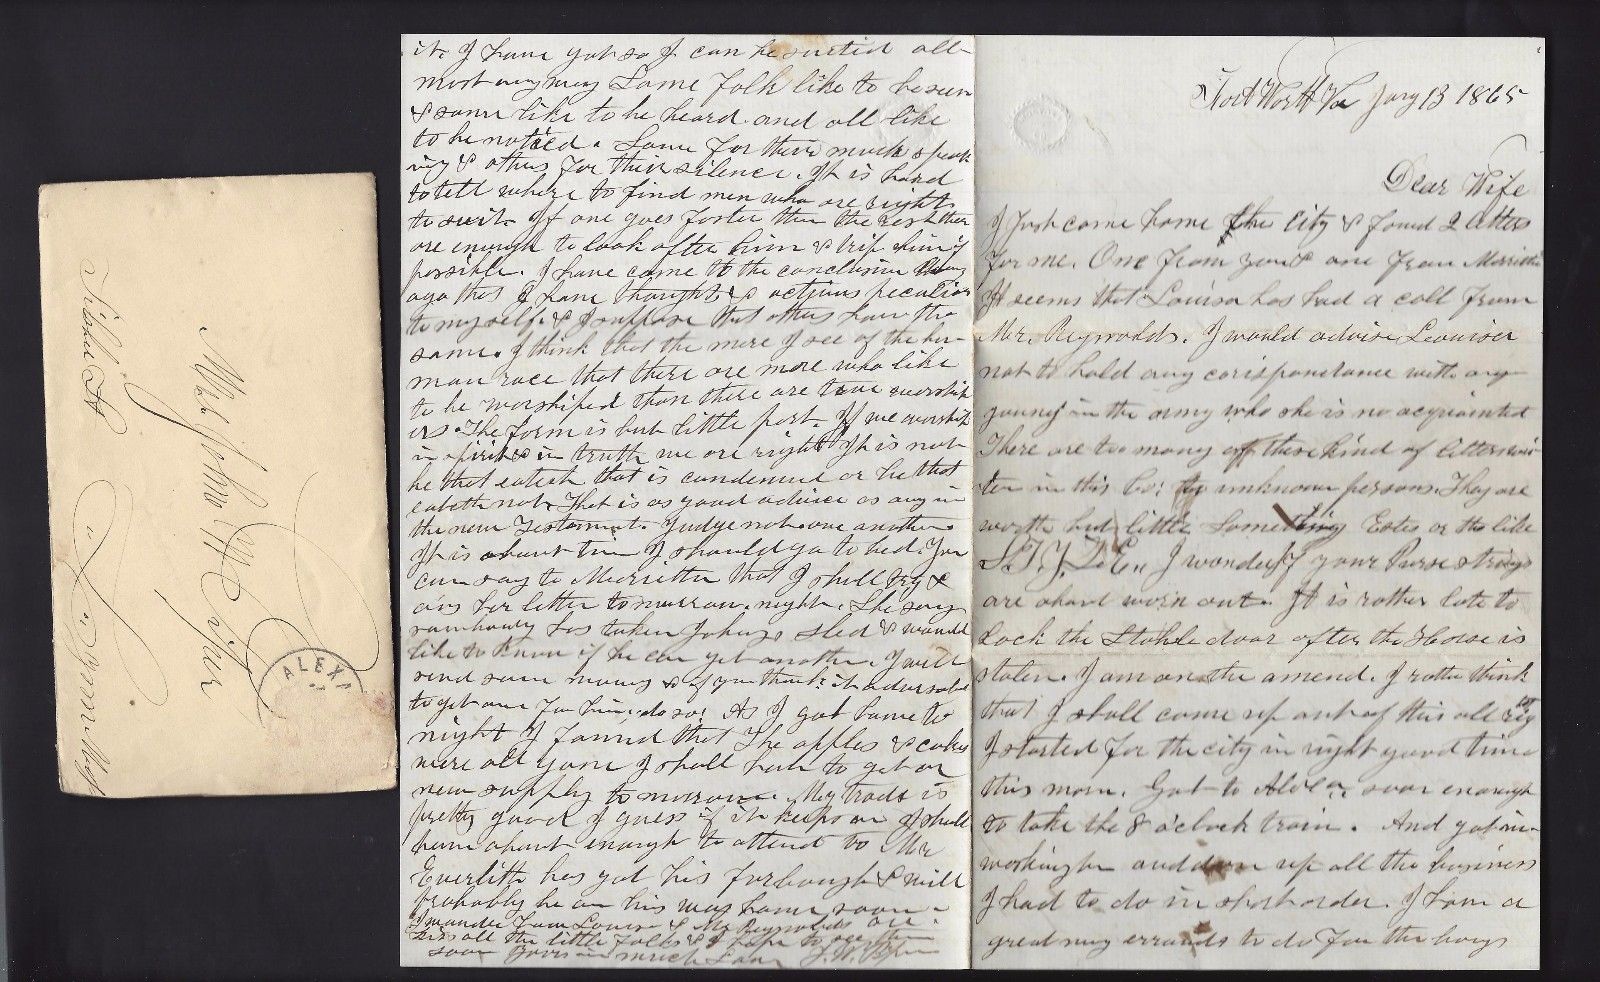 Mrs John H Pifer
Lynn Mass
Silsbee St
ALEX
Fort Worth Va Jany 13 1865
Dear Wife
I Just come home the City & found 2 letters
for me. One from you & one from Marietta
It seems that Louisa has had a call from
Mr. Reynolds. I would advise Leouisa
not to hold any corispondance with any
young in the army who she is no acquainted
There are too many of these kind of letters wri-
ten in this Co: by unknown persons. They are
worth but little Something Estes or the like
I wonder if your Purse strings
are about worn out. It is rather late to
Lock the Stable door after the Horse is
stolen. I am on the amend. I rather think
that I shall come up out of this all rig
I started for the city in right good time
this morn. Got to Alex soon enough
to take the 8 o'clock train. And got in
washington and done up all the business
I had to do in short order. I have a
great many errands to do for the boys
it. I have got so I can be suited all-
most any way Some folk like to be seen
& some like to be heard and all like
to be noticed. Some for there much speak
ing & others for their silence. It is hard
to tell where to find men who are right
to suit. If one goes faster then the rest ther
are enough to look after him & trip him if
possible. I have come to the conclusion long
ago that I have thoughts & actions peculiar
to myself & I suppose that others have the
same. I think that the more I see of the hu-
man race that there are more who like
to be worshiped than there are true worship
ers. The form is but little part. If we worship
in spirit & in truth we are right. It is not
he that eateth that is condemned or he that
eateth not. That is as good advice as any in
the new Testament. Judge not one another
It is about time I should go to bed. You
can say to Marietta that I shall try &
ans her letter tomorrow night. She says
somebody has taken Johnys sled & would
like to know if he can get another. I will
send some money & if you think it advisable
to get one for him, do so. As I got home to
night I found that the apples & cakes
were all gone I shall have to get a
new supply tomorrow. My trade is
pretty good I guess if it keeps on I shall
have about enough to attend to Mr
Everlith has got his furlough & will
probably be on his way home soon
I wonder how Louisa & Mr Reynolds are.
Kiss all the little folks & I hope to see them
soon Yours in much Love J. H. Pifer